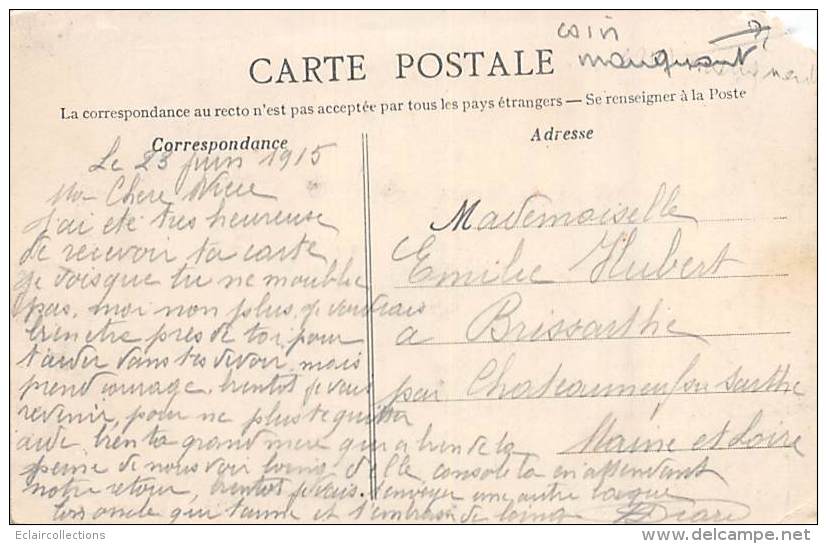 coin
manquant
CARTE POSTALE
La correspondance au recto n'est pas acceptée par tous les pays étrangers — Se renseigner à la Poste
Correspondance
Adresse
Le 23 juin 1915
Ma Chere Niece
J'ai ete tres heureuse
de recevoir ta carte
je vois que tu ne m'oublie
pas, moi non plus, je voudrais
bien etre pres de toi pour
t'aider dans tes devoir, mais
prend courage, bientot je vais
revenir, pour ne plus te quitter
aide bien ta grand mere qui a bien de la
peine de nous voir loins d'elle console la en attendant
notre retour, bientot je vais t'envoyer une autre
ton oncle qui t'aime et t'embrasse de loing
Mademoiselle
Emilie Hubert
a Brissarthe
par Chateauneuf sur Sarthe
Maine et Loire
Eclaircollections
delcampe.net